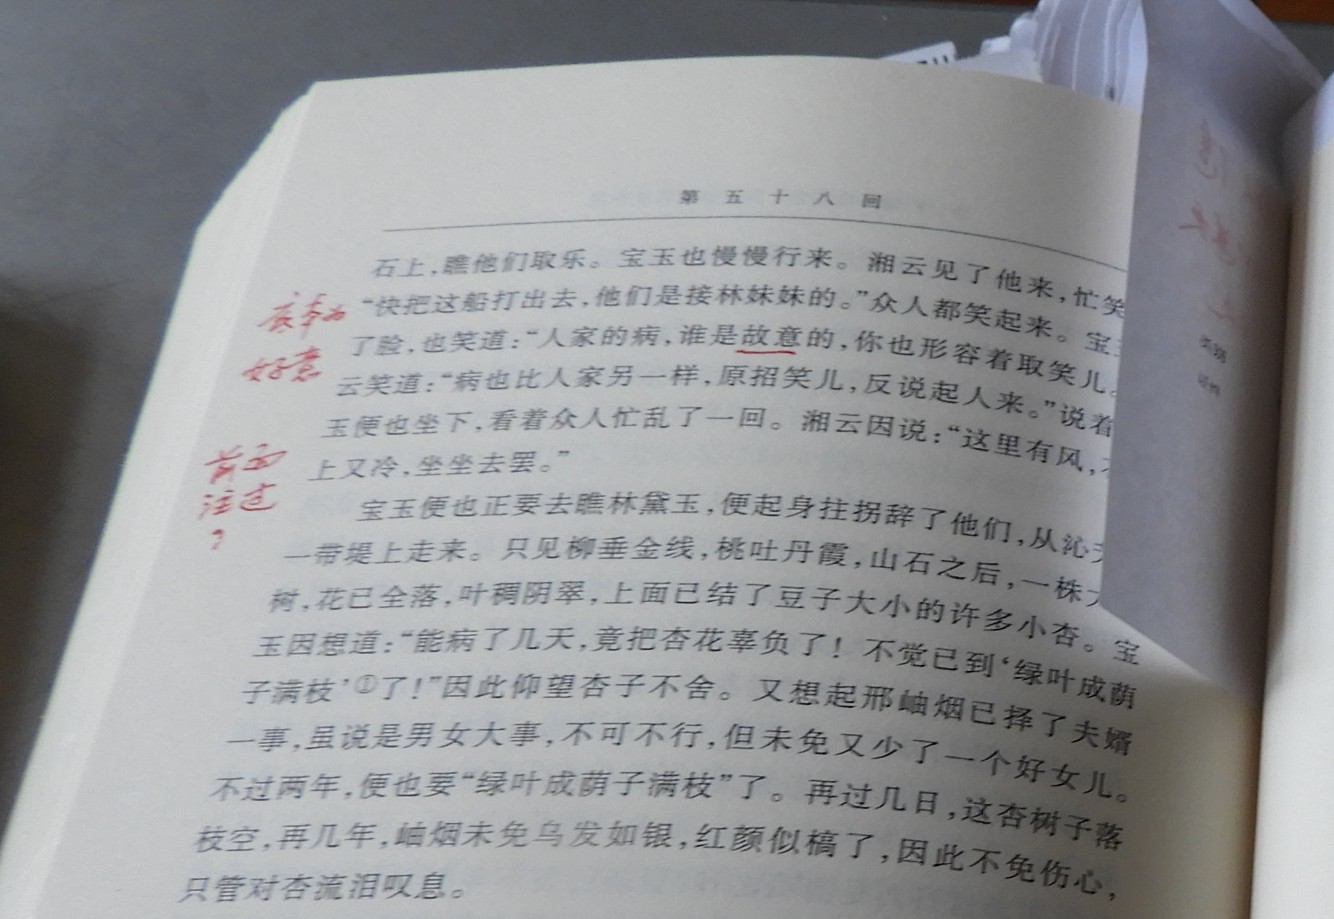 第五十八回
石上，瞧他们取乐。宝玉也慢慢行来。湘云见了他来，忙笑
“快把这船打出去，他们是接林妹妹的。”众人都笑起来。宝
了脸，也笑道：“人家的病，谁是故意的，你也形容着取笑儿。
云笑道：“病也比人家另一样，原招笑儿，反说起人来。”说着
玉便也坐下，看着众人忙乱了一回。湘云因说：“这里有风，
上又冷，坐坐去罢。”
宝玉便也正要去瞧林黛玉，便起身拄拐辞了他们，从沁
一带堤上走来。只见柳垂金线，桃吐丹霞，山石之后，一株
树，花已全落，叶稠阴翠，上面已结了豆子大小的许多小杏。宝
玉因想道：“能病了几天，竟把杏花辜负了！不觉已到‘绿叶成荫
子满枝’①了！”因此仰望杏子不舍。又想起邢岫烟已择了夫婿
一事，虽说是男女大事，不可不行，但未免又少了一个好女儿。
不过两年，便也要“绿叶成荫子满枝”了。再过几日，这杏树子落
枝空，再几年，岫烟未免乌发如银，红颜似槁了，因此不免伤心，
只管对杏流泪叹息。
本为
好意
前面
注过
？